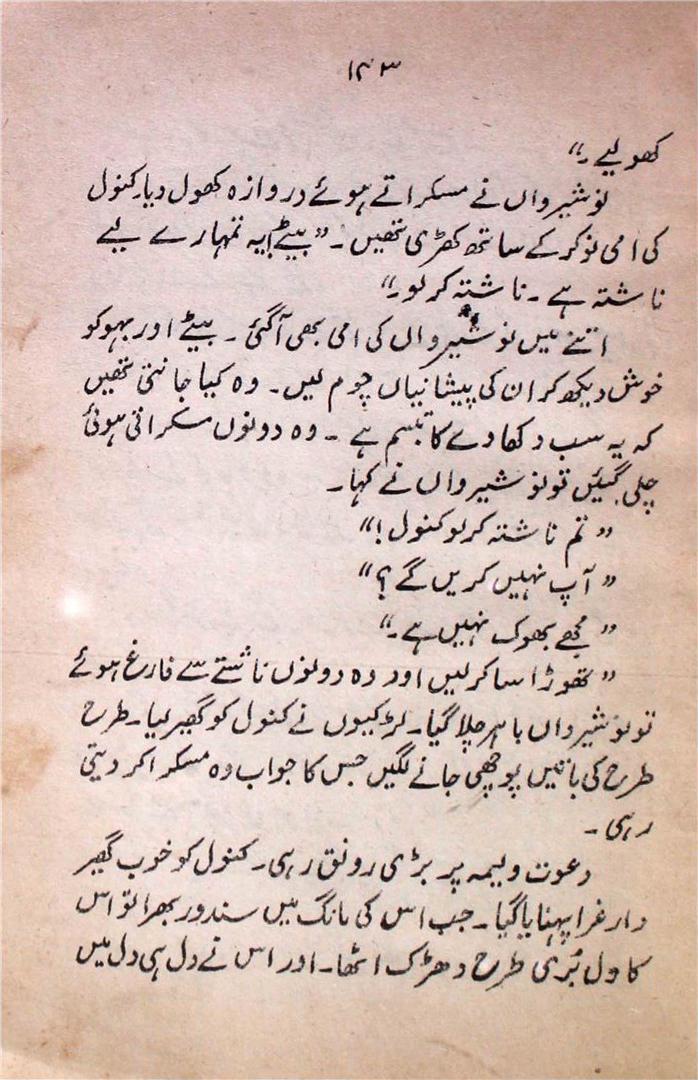 ۱۴۳
کھولیے۔“
نوشیرواں نے مسکراتے ہوئے دروازہ کھول دیا۔ کنول
کی امی نوکر کے ساتھ کھڑی تھیں۔ ”بیٹے! یہ تمہارے لیے
ناشتہ ہے۔ ناشتہ کر لو۔“
اتنے میں نوشیرواں کی امی بھی آگئی۔ بیٹے اور بہو کو
خوش دیکھ کر ان کی پیشانیاں چوم لیں۔ وہ کیا جانتی تھیں
کہ یہ سب دکھادے کا تبسم ہے۔ وہ دونوں مسکراتی ہوئی
چلی گئیں تو نوشیرواں نے کہا۔
”تم ناشتہ کر لو کنول!“
”آپ نہیں کریں گے؟“
”مجھے بھوک نہیں ہے۔“
”تھوڑا سا کر لیں اور وہ دونوں ناشتے سے فارغ ہوئے
تو نوشیرواں باہر چلا گیا۔ لڑکیوں نے کنول کو گھیر لیا۔ طرح
طرح کی باتیں پوچھی جانے لگیں جس کا جواب وہ مسکرا کر دیتی
رہی۔
دعوت ولیمہ پر بڑی رونق رہی۔ کنول کو خوب گھیر
دار غرا پہنایا گیا۔ جب اس کی مانگ میں سندور بھرا تو اس
کا دل بُری طرح دھڑک اٹھا۔ اور اس نے دل ہی دل میں